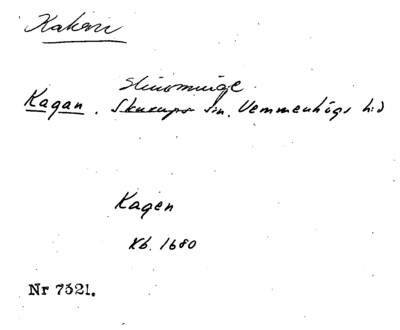 Kakan
Slimminge
Kagan. Skurups sn, Vemmenhögs hd
Kagen
Kb. 1680
Nr 7521.